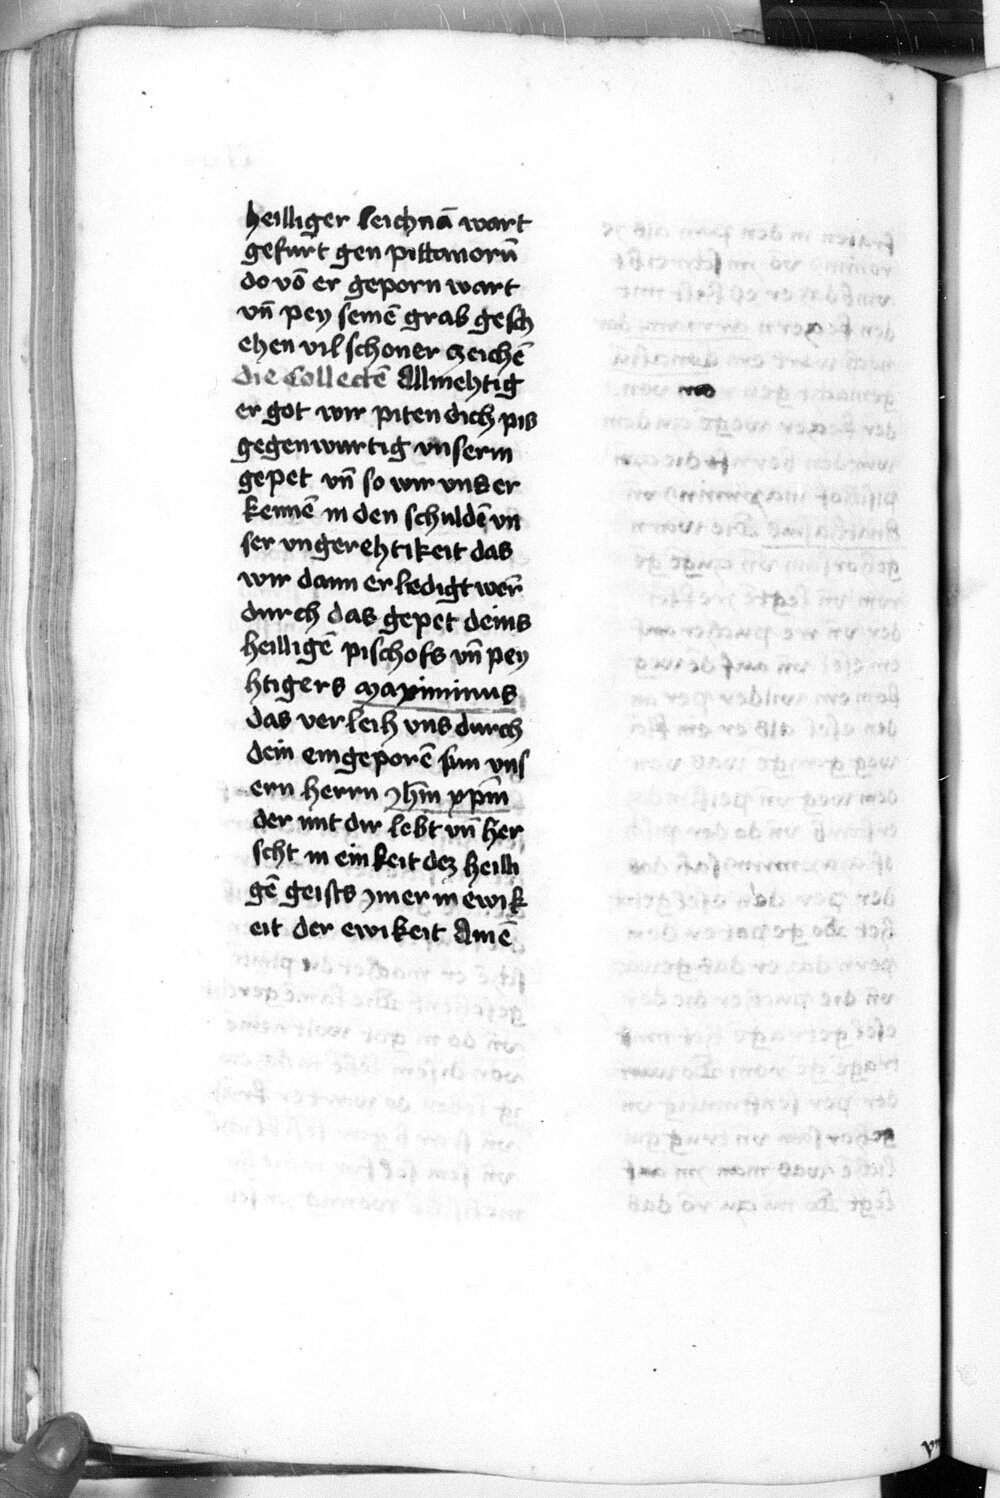 heilliger leichnā wart
gefurt gen pittaworū
do vō er geporn wart
vn̄ pey seinē grab gesch
ehen vil schoner czeichē
die Collectē Allmehtig
er got wir piten dich pis
gegenwurtig vnserm
gepet vn̄ so wir vns er
kennē in den schuldē vn
ser vngerehtikeit das
wir dann erledigt wer̄
durch das gepet deins
heilligē pischofs vn̄ pey
htigers Maximinus
das verleih vns durch
dein eingeporē sun vns
ern herrn yhm̄ xpm̄
der mit dir lebt vn̄ her
scht in einkeit dez heilli
gē geists ymer in ewik
eit der ewikeit Amē